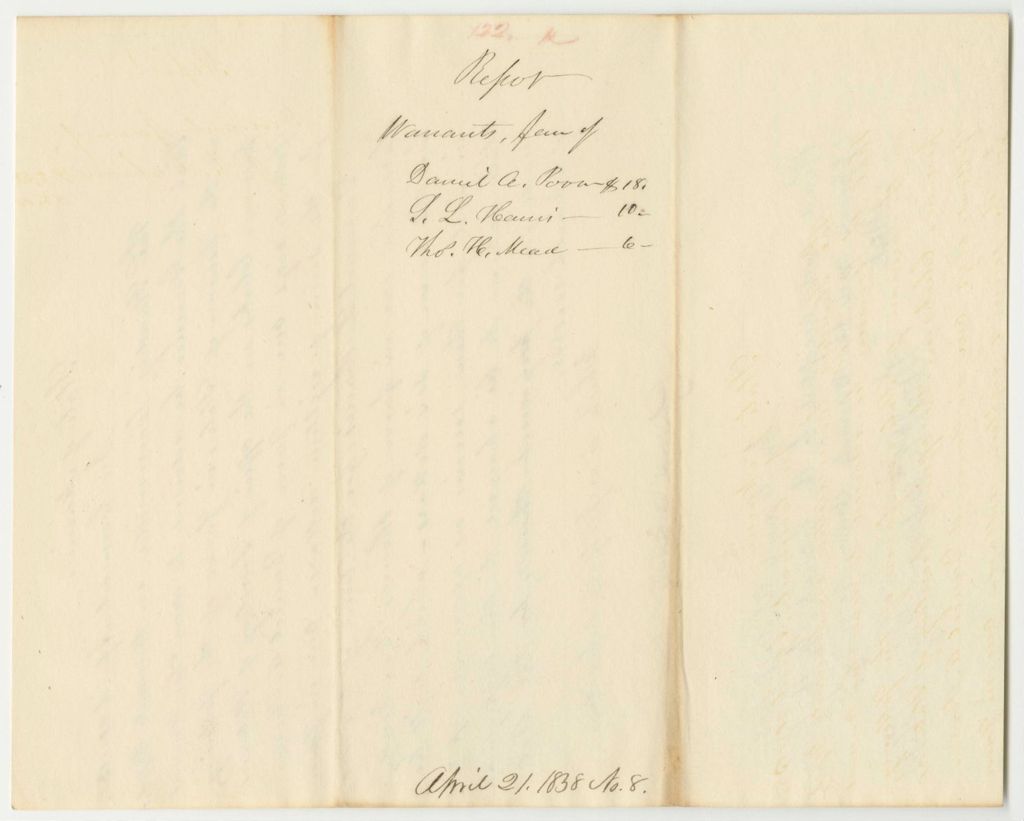 122.
Report
Warrants, fav of
Daniel A. Poor $18.
S. L. Harris — 10=
Tho. H. Mead — 6–
April 21. 1838 No. 8.